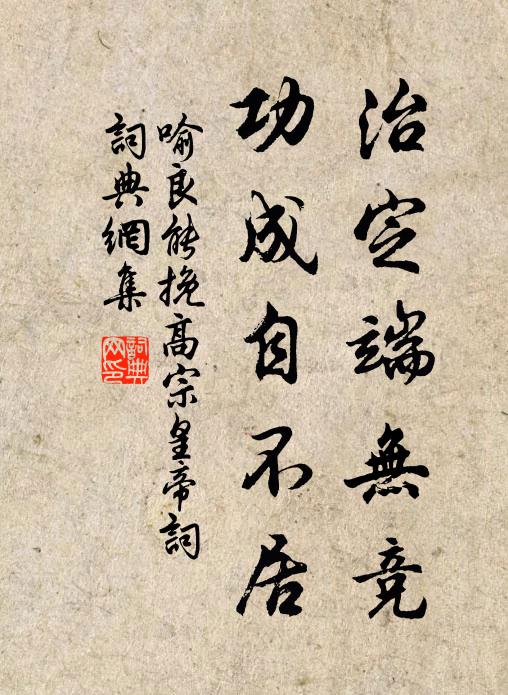 治定端無竞
功成自不居
喻良能挽高宗皇帝詞
詞典網集
詞典网印